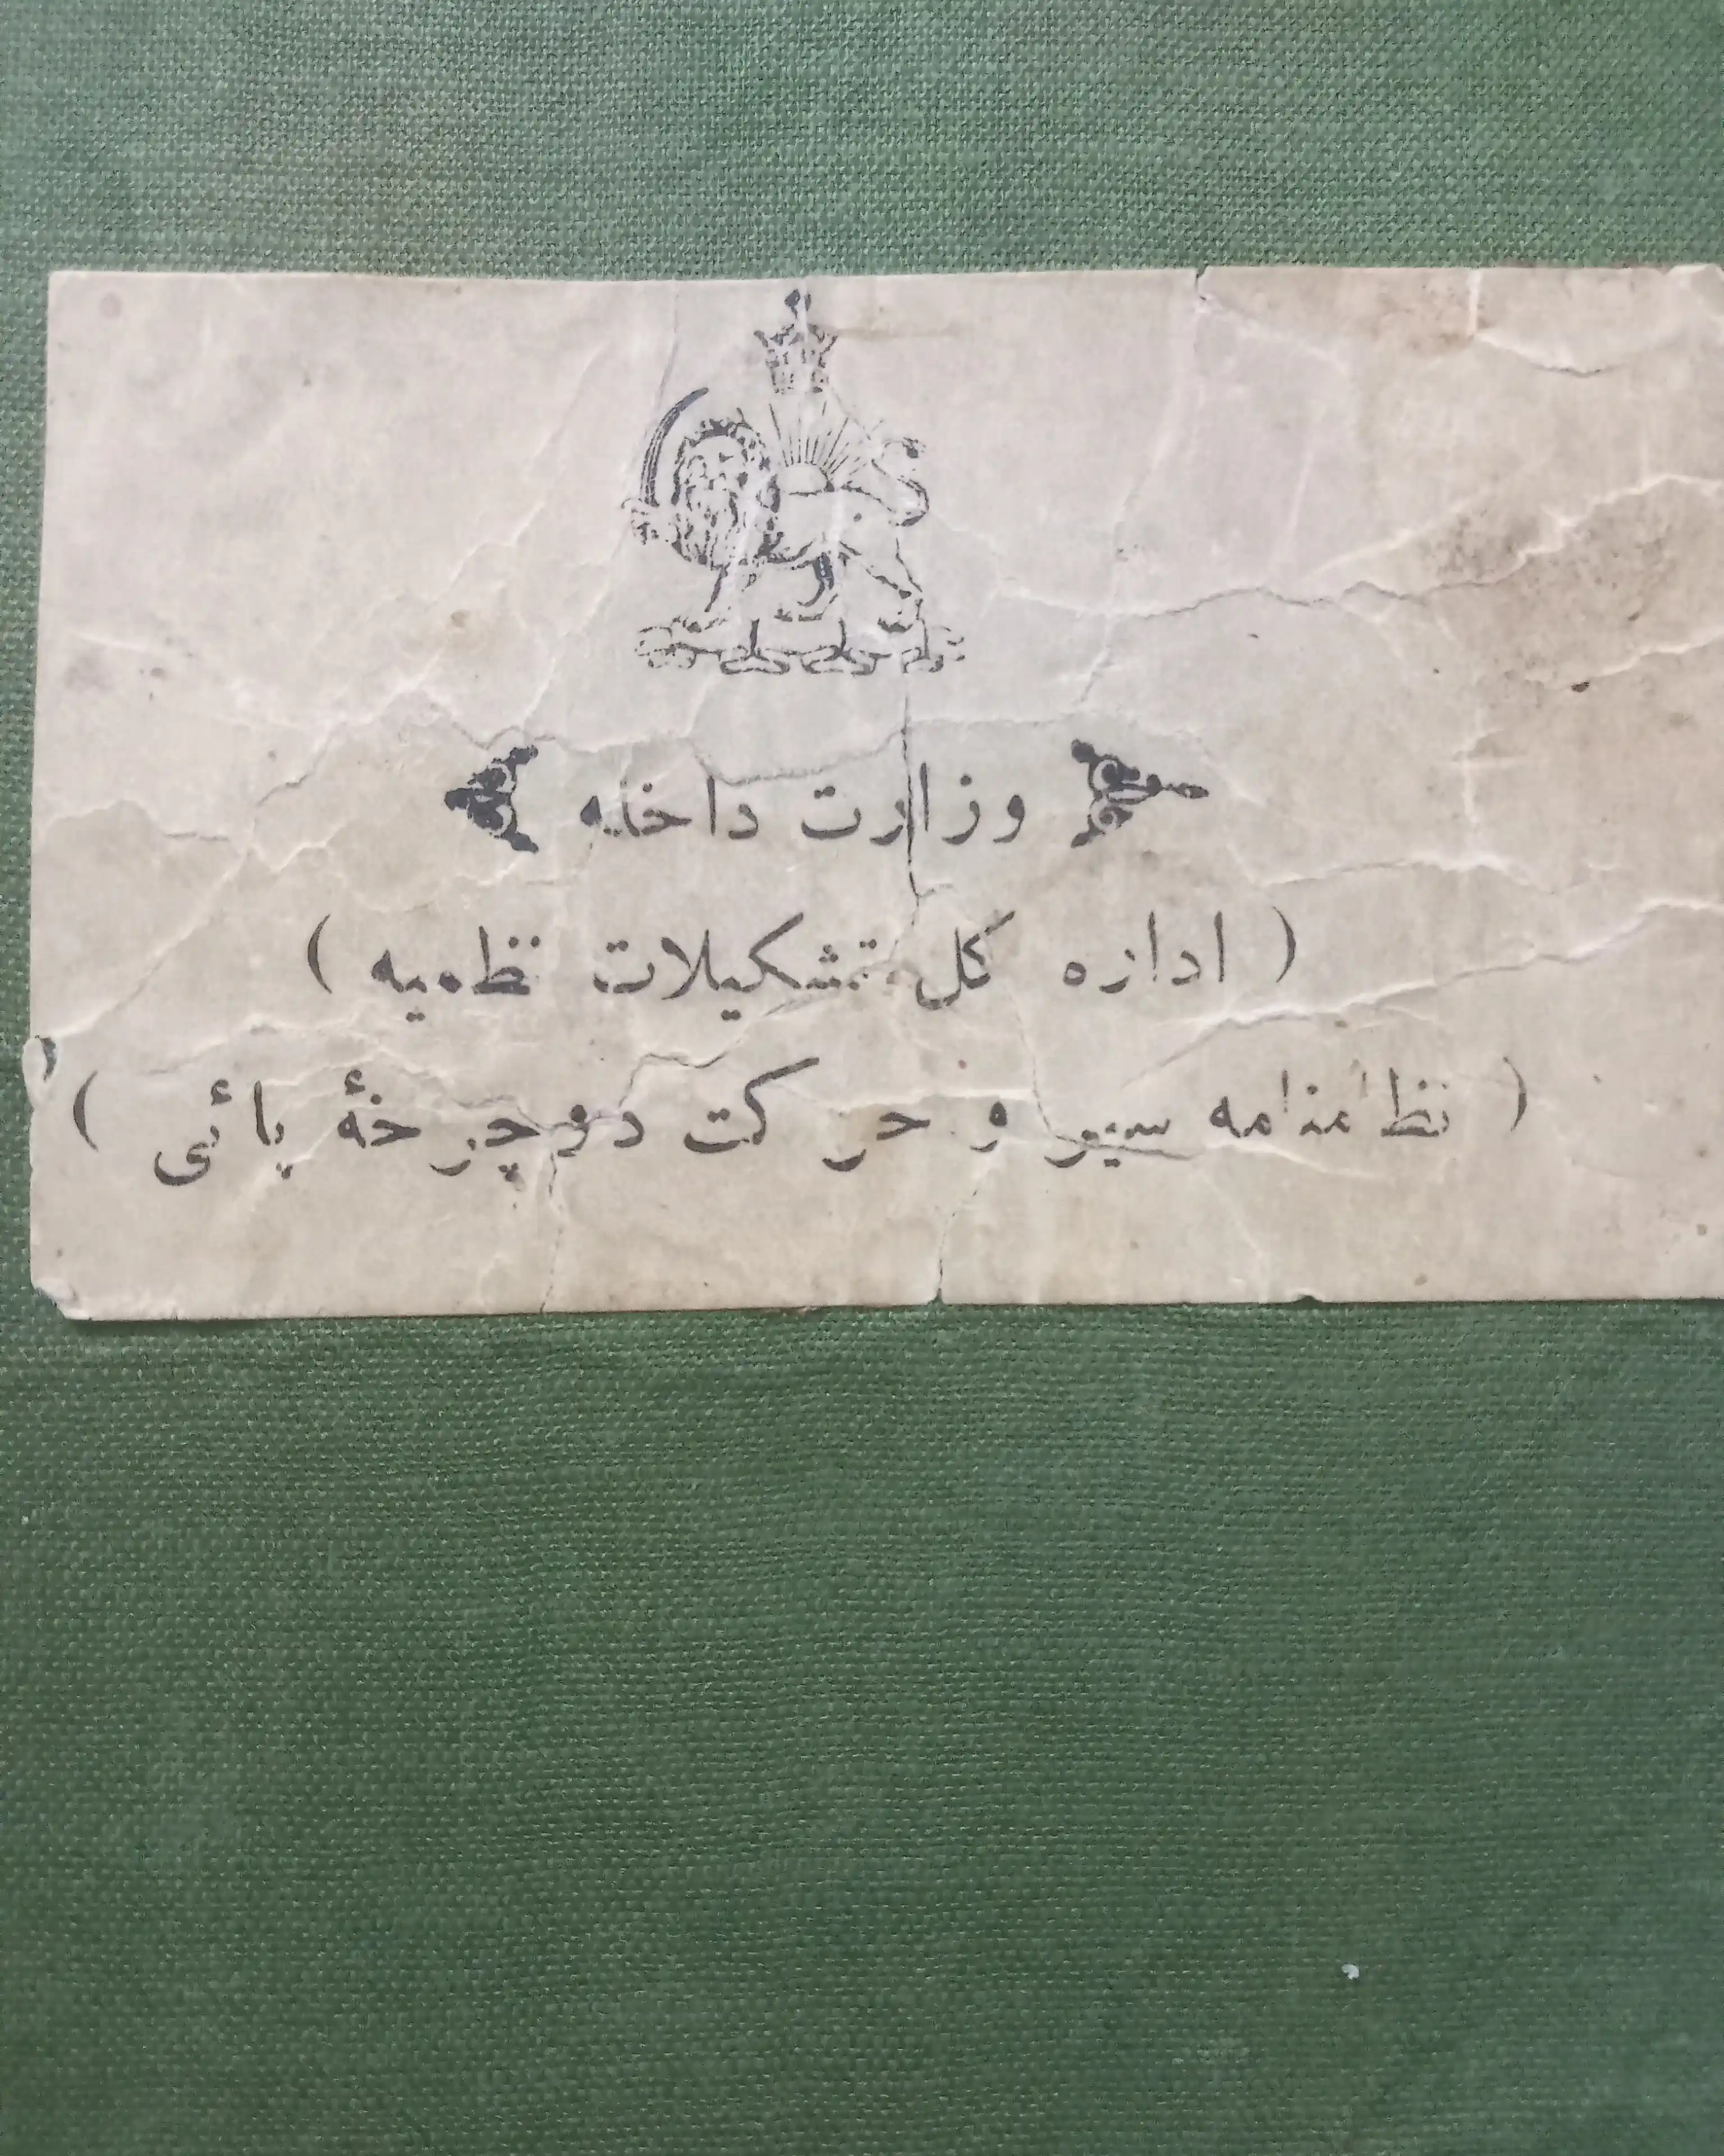 وزارت داخله
( اداره کل تشکیلات نظمیه )
( نظامنامه سیر و حرکت دوچرخهٔ پائی )